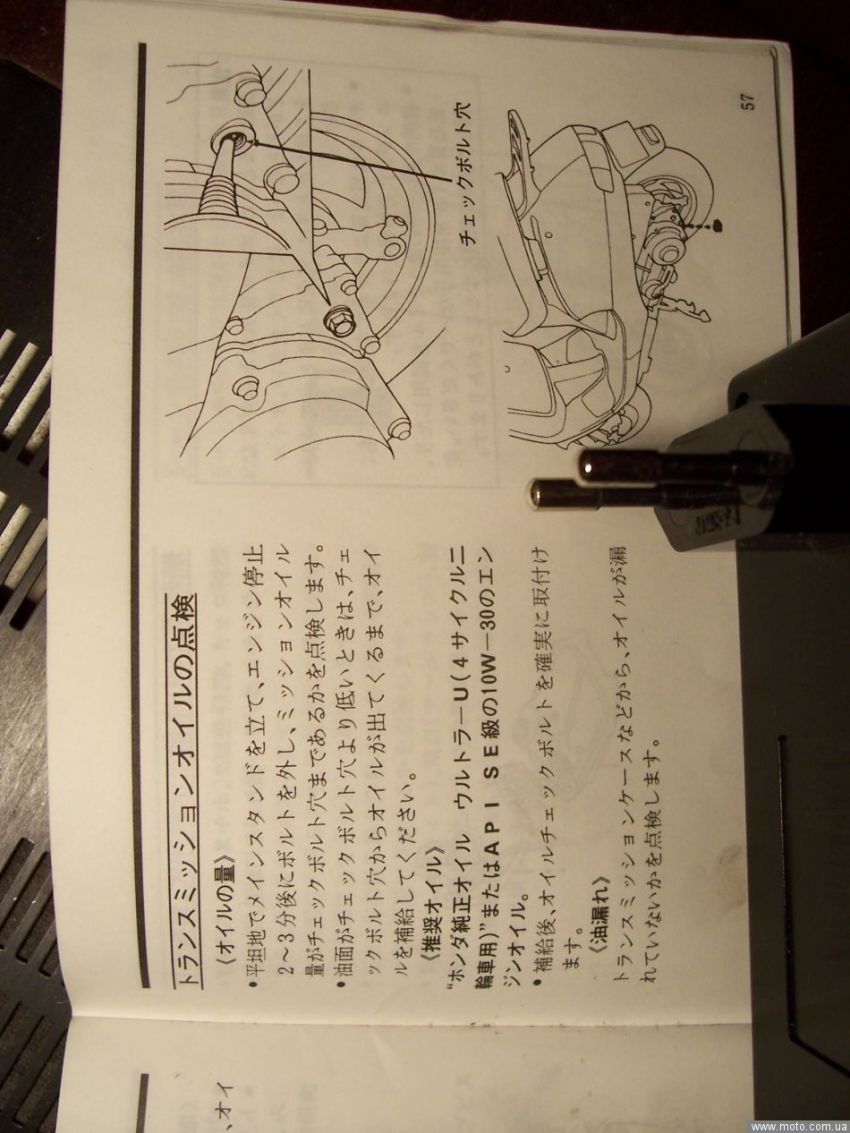 トランスミッションオイルの点検
《オイルの量》
•平坦地でメインスタンドを立て、エンジン停止
2〜3分後にボルトを外し、ミッションオイル
量がチェックボルト穴まであるかを点検します。
•油面がチェックボルト穴より低いときは、チェ
ックボルト穴からオイルが出てくるまで、オイ
ルを補給してください。
《推奨オイル》
“ホンダ純正オイル ウルトラ-U(4サイクル二
輪車用)”またはAPI SE級の10W-30のエン
ジンオイル。
•補給後、オイルチェックボルトを確実に取付け
ます。
《油漏れ》
トランスミッションケースなどから、オイルが漏
れていないかを点検します。
チェックボルト穴
57
、オイ
www.moto.com.ua